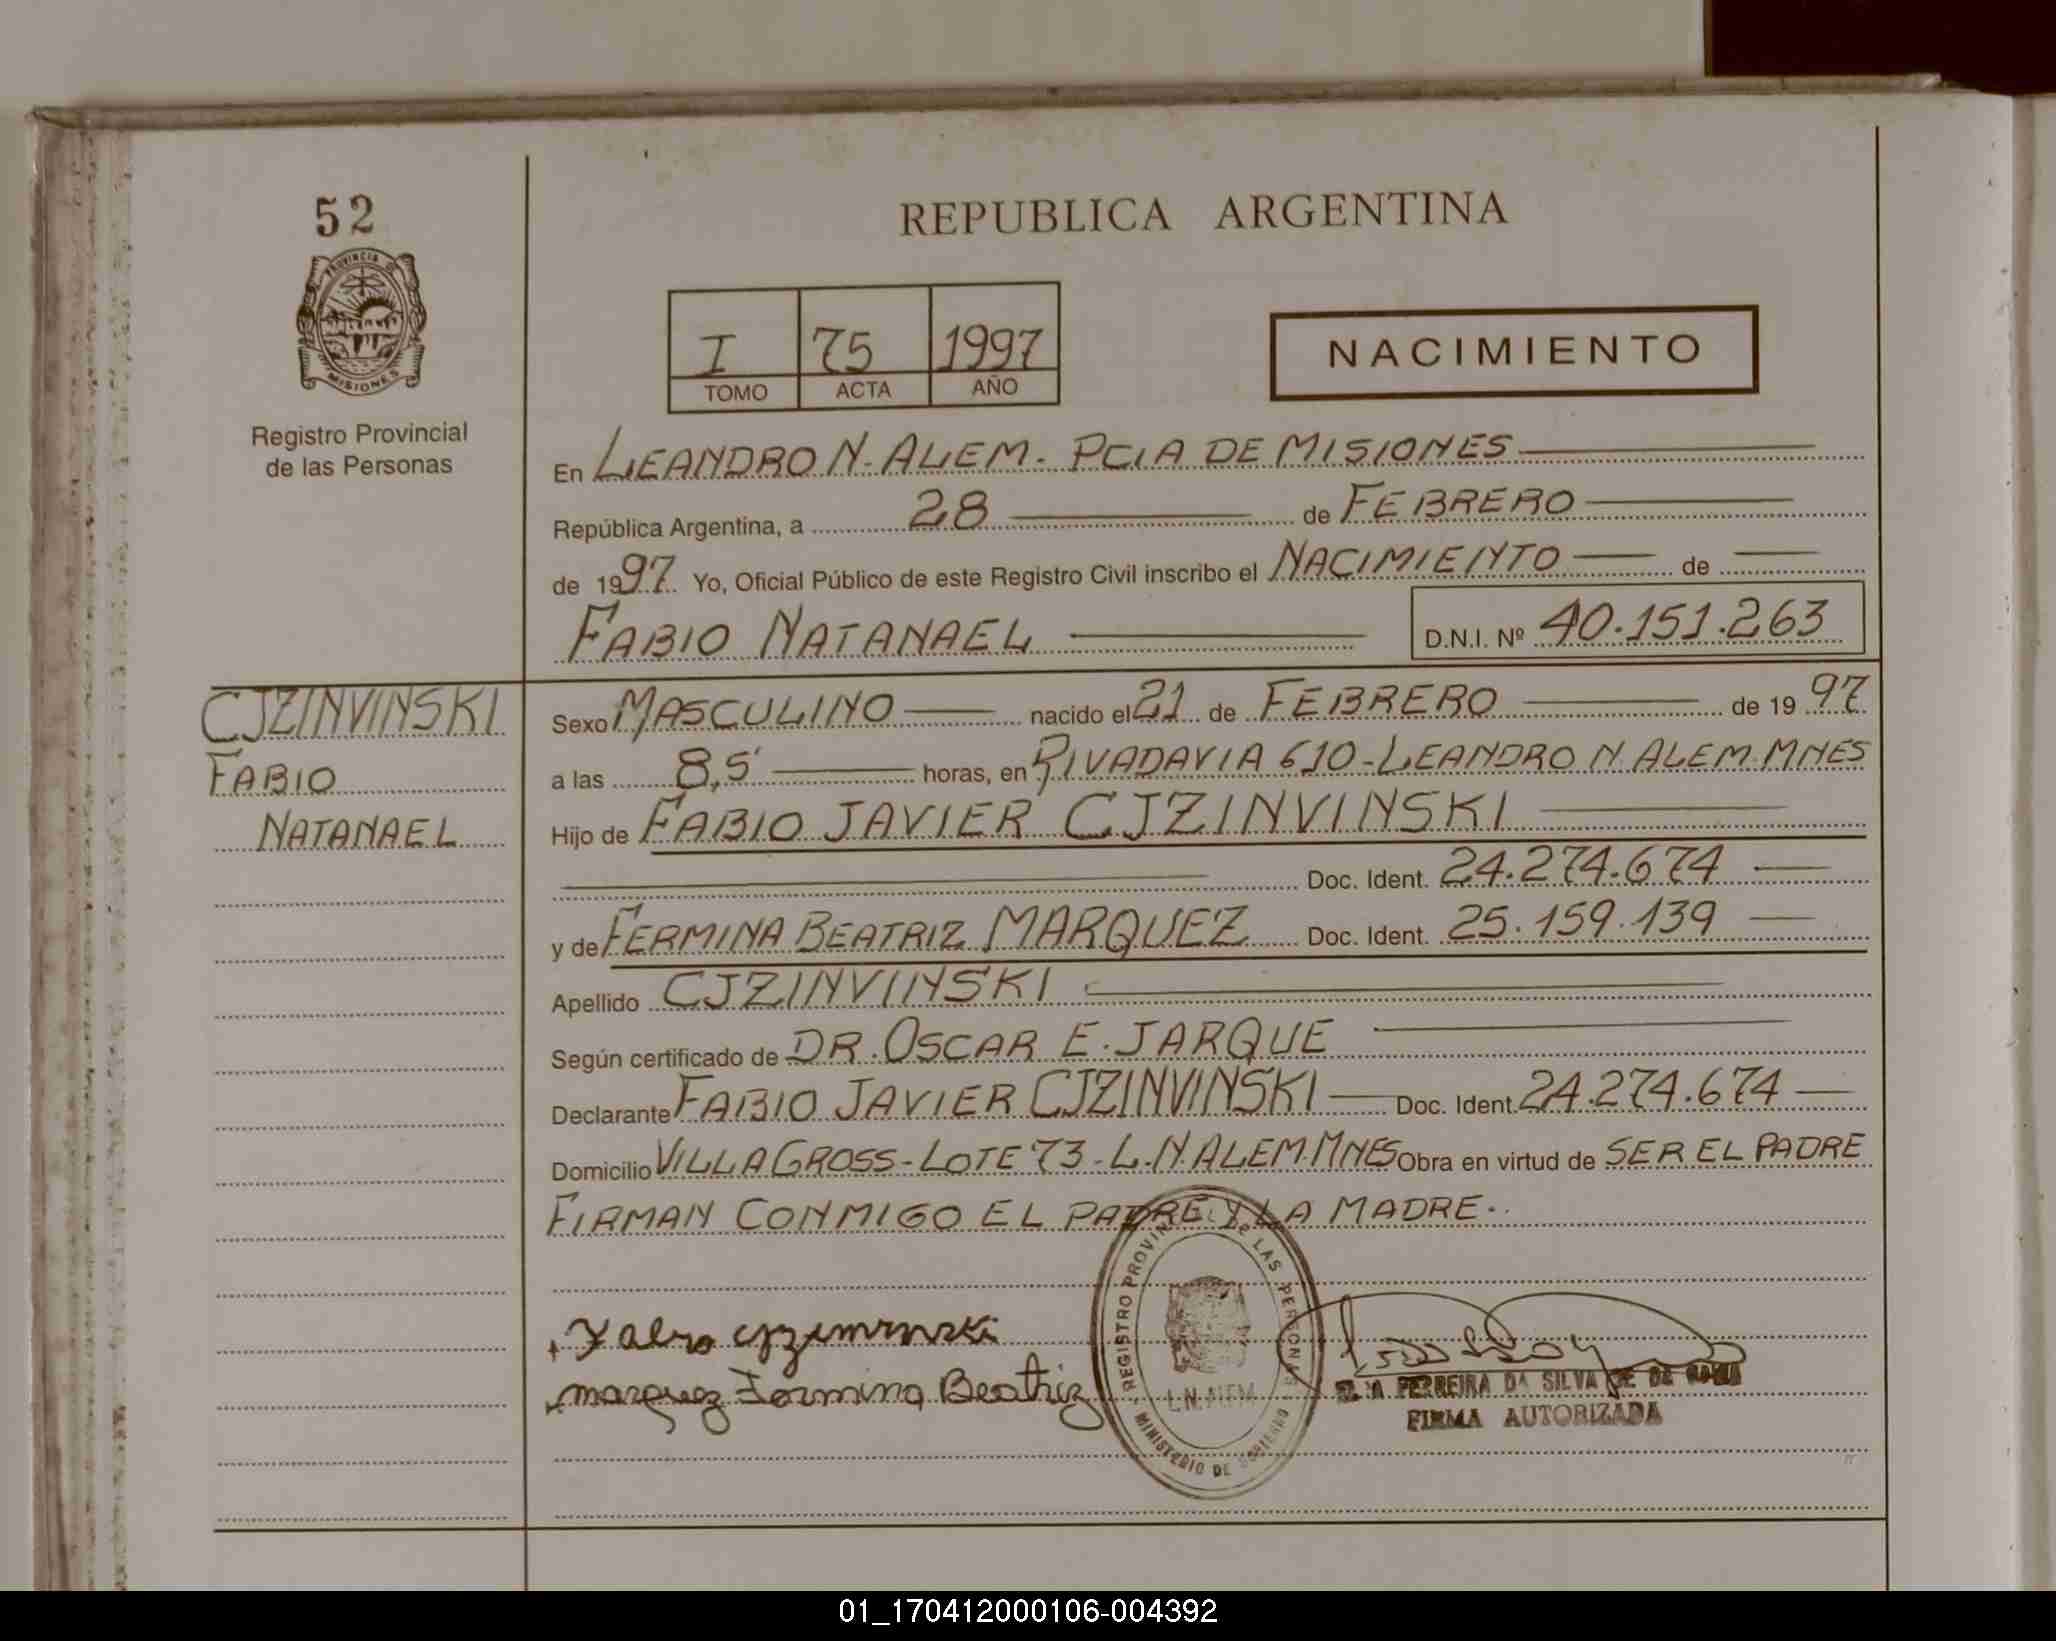 52
REPUBLICA ARGENTINA
PROVINCIA DE
MISIONES
Registro Provincial
de las Personas
I 75 1997
TOMO ACTA AÑO
NACIMIENTO
En LEANDRO N. ALEM - PCIA DE MISIONES
República Argentina, a 28 de FEBRERO
de 1997. Yo, Oficial Público de este Registro Civil inscribo el NACIMIENTO de
FABIO NATANAEL D.N.I. Nº 40.151.263
CJZINVINSKI
FABIO
NATANAEL
Sexo MASCULINO nacido el 21 de FEBRERO de 1997
a las 8,5' horas, en RIVADAVIA 610 - LEANDRO N. ALEM. MNES
Hijo de FABIO JAVIER CJZINVINSKI
Doc. Ident. 24.274.674
y de FERMINA BEATRIZ MARQUEZ Doc. Ident. 25.159.139
Apellido CJZINVINSKI
Según certificado de DR. OSCAR E. JARQUE
Declarante FABIO JAVIER CJZINVINSKI Doc. Ident. 24.274.674
Domicilio VILLA GROSS - LOTE 73 - L.N. ALEM. MNES Obra en virtud de SER EL PADRE
FIRMAN CONMIGO EL PADRE Y LA MADRE.
REGISTRO PROVINCIAL DE LAS PERSONAS
L.N. ALEM
MINISTERIO DE GOBIERNO
marquez Fermina Beatriz
FERREIRA DA SILVA DE
FIRMA AUTORIZADA
01_170412000106-004392